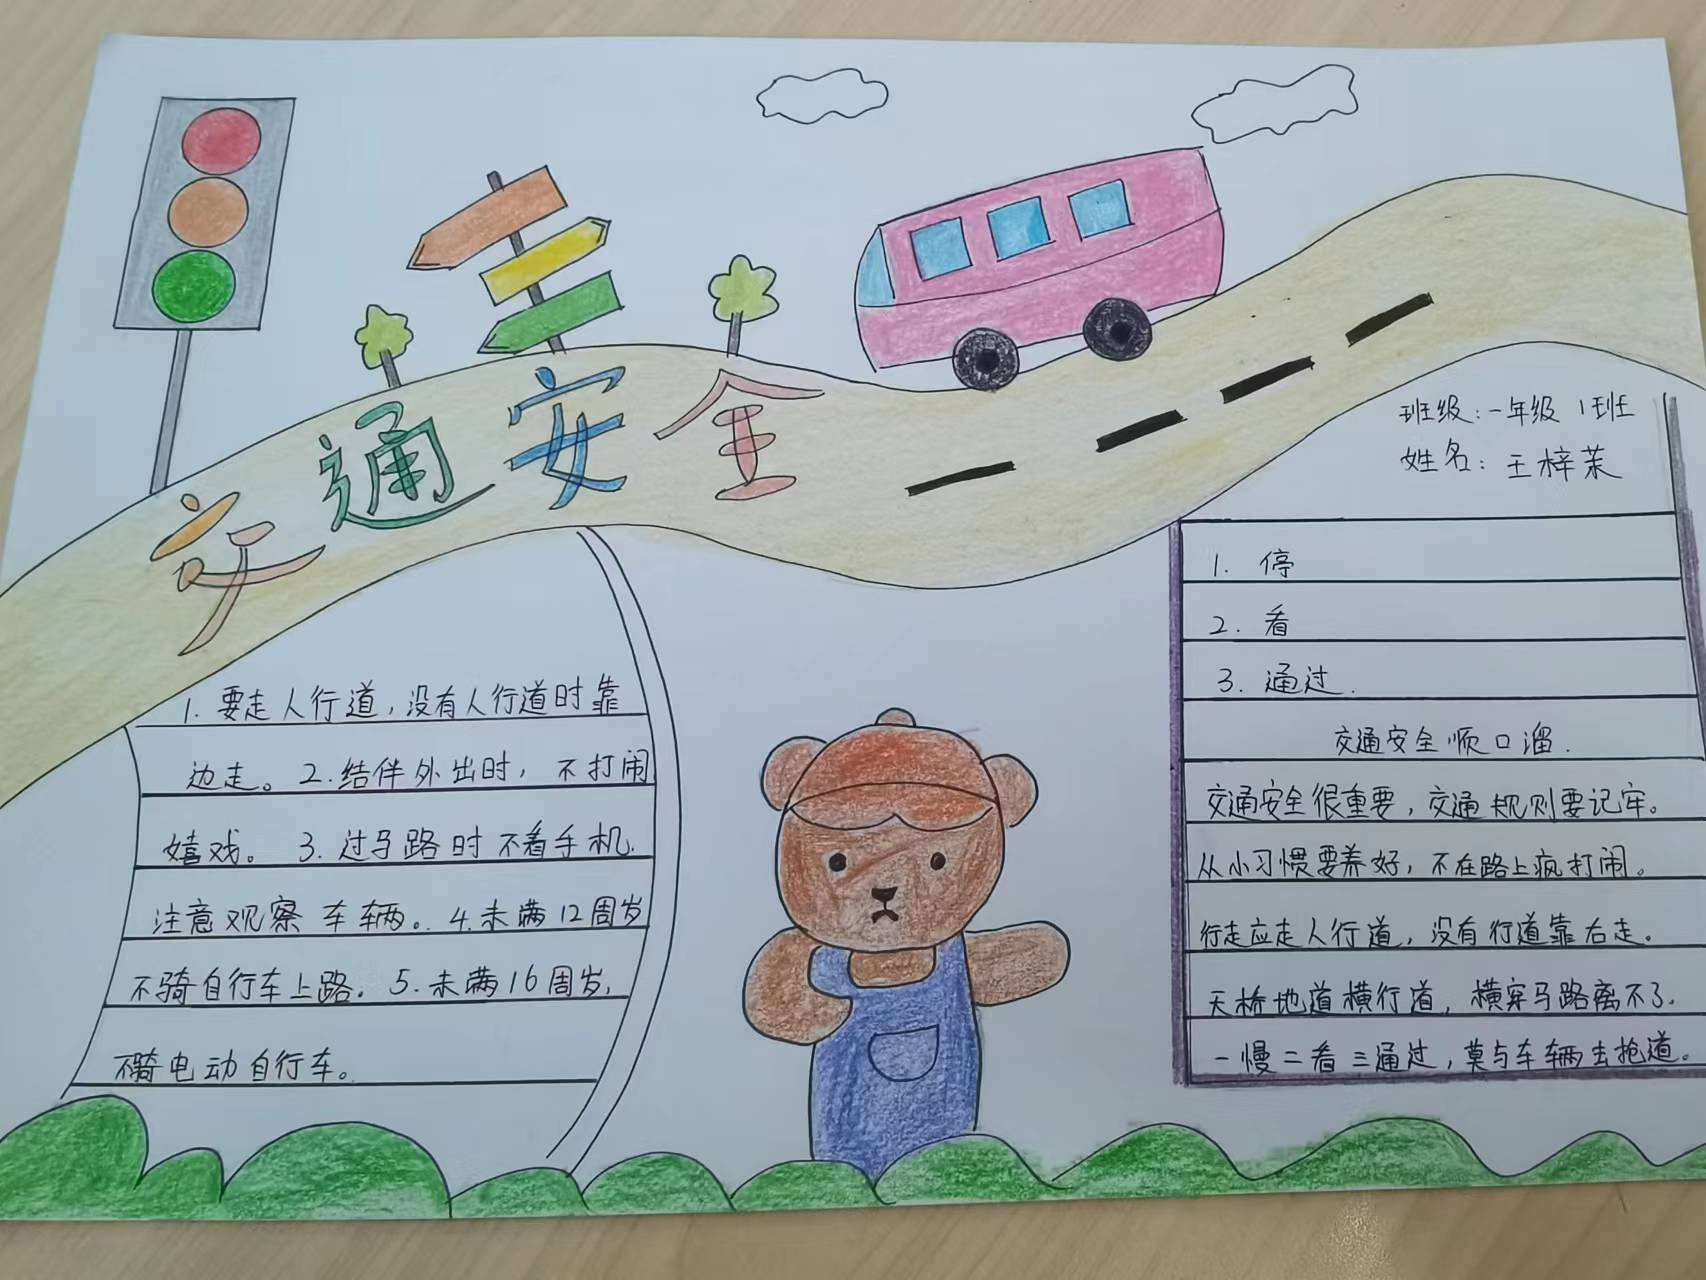 交通安全
班级:一年级 1班
姓名:王梓茉
1. 要走人行道,没有人行道时靠
边走。2.结伴外出时,不打闹
嬉戏。3.过马路时不看手机.
注意观察车辆。4.未满12周岁
不骑自行车上路。5.未满16周岁,
不骑电动自行车。
1. 停
2. 看
3. 通过.
交通安全顺口溜.
交通安全很重要,交通规则要记牢。
从小习惯要养好,不在路上疯打闹。
行走应走人行道,没有行道靠右走。
天桥地道横行道,横穿马路离不了.
一慢二看三通过,莫与车辆去抢道。